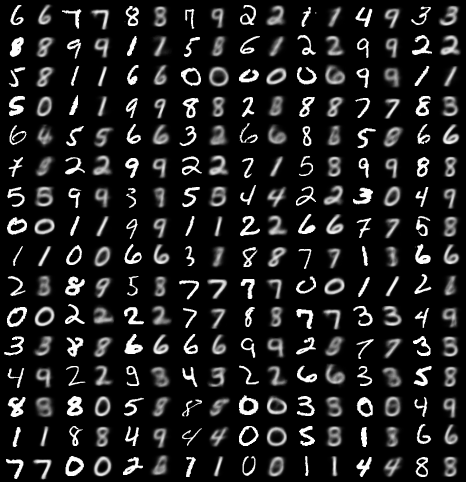 6 6 7 7 8 8 7 9 2 2 1 1 4 9 3 3
8 8 9 9 1 1 5 8 6 1 2 2 9 9 2 2
5 8 1 1 6 6 0 0 0 0 0 6 9 9 1 1
5 0 1 1 9 9 8 8 2 8 8 8 7 7 8 3
6 4 5 5 6 6 3 2 6 6 8 8 5 0 6 6
7 8 2 2 9 9 2 2 7 1 5 8 9 9 8 8
5 5 9 9 3 9 5 5 4 4 2 2 3 0 4 9
0 0 1 1 9 9 1 1 2 2 6 6 7 7 5 8
1 1 0 0 6 6 3 1 8 8 7 7 1 3 6 6
2 3 8 9 5 8 7 7 7 7 0 0 1 1 2 8
0 0 2 2 2 2 7 7 8 8 7 7 3 3 4 9
3 3 8 8 6 6 6 6 9 9 2 8 7 7 3 3
4 9 2 2 9 3 4 3 2 2 6 6 3 3 5 8
8 8 8 0 5 8 8 8 0 0 3 3 0 0 4 9
1 1 8 8 4 9 4 4 0 0 5 8 1 3 6 6
7 7 0 0 2 8 7 1 0 0 1 1 4 4 8 8